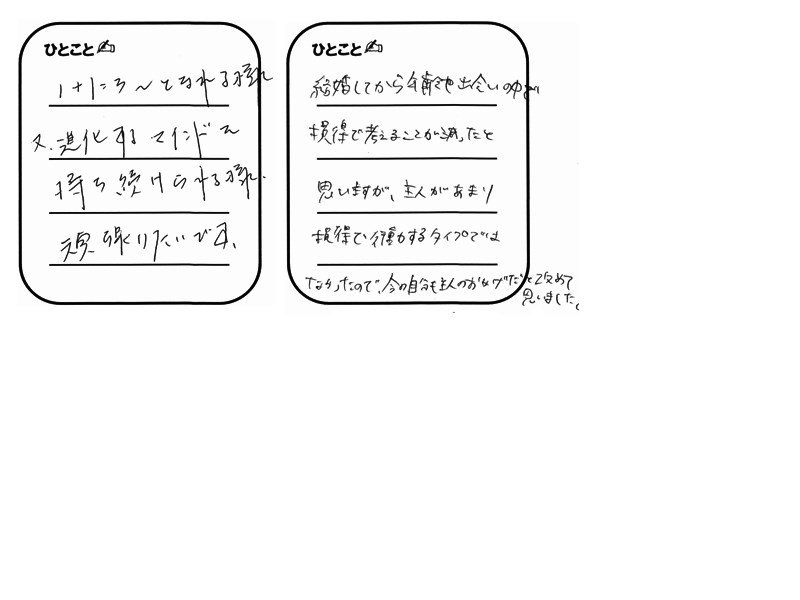 ひとこと
1+1=3〜となれる様に
又、進化するマインドを
持ち続けられる様、
頑張りたいです。
ひとこと
結婚してから 出会いの中で
損得で考えることが減ったと
思いますが、主人があまり
損得で行動するタイプでは
なかったので、今の自分も主人のおかげだと改めて
思いました。